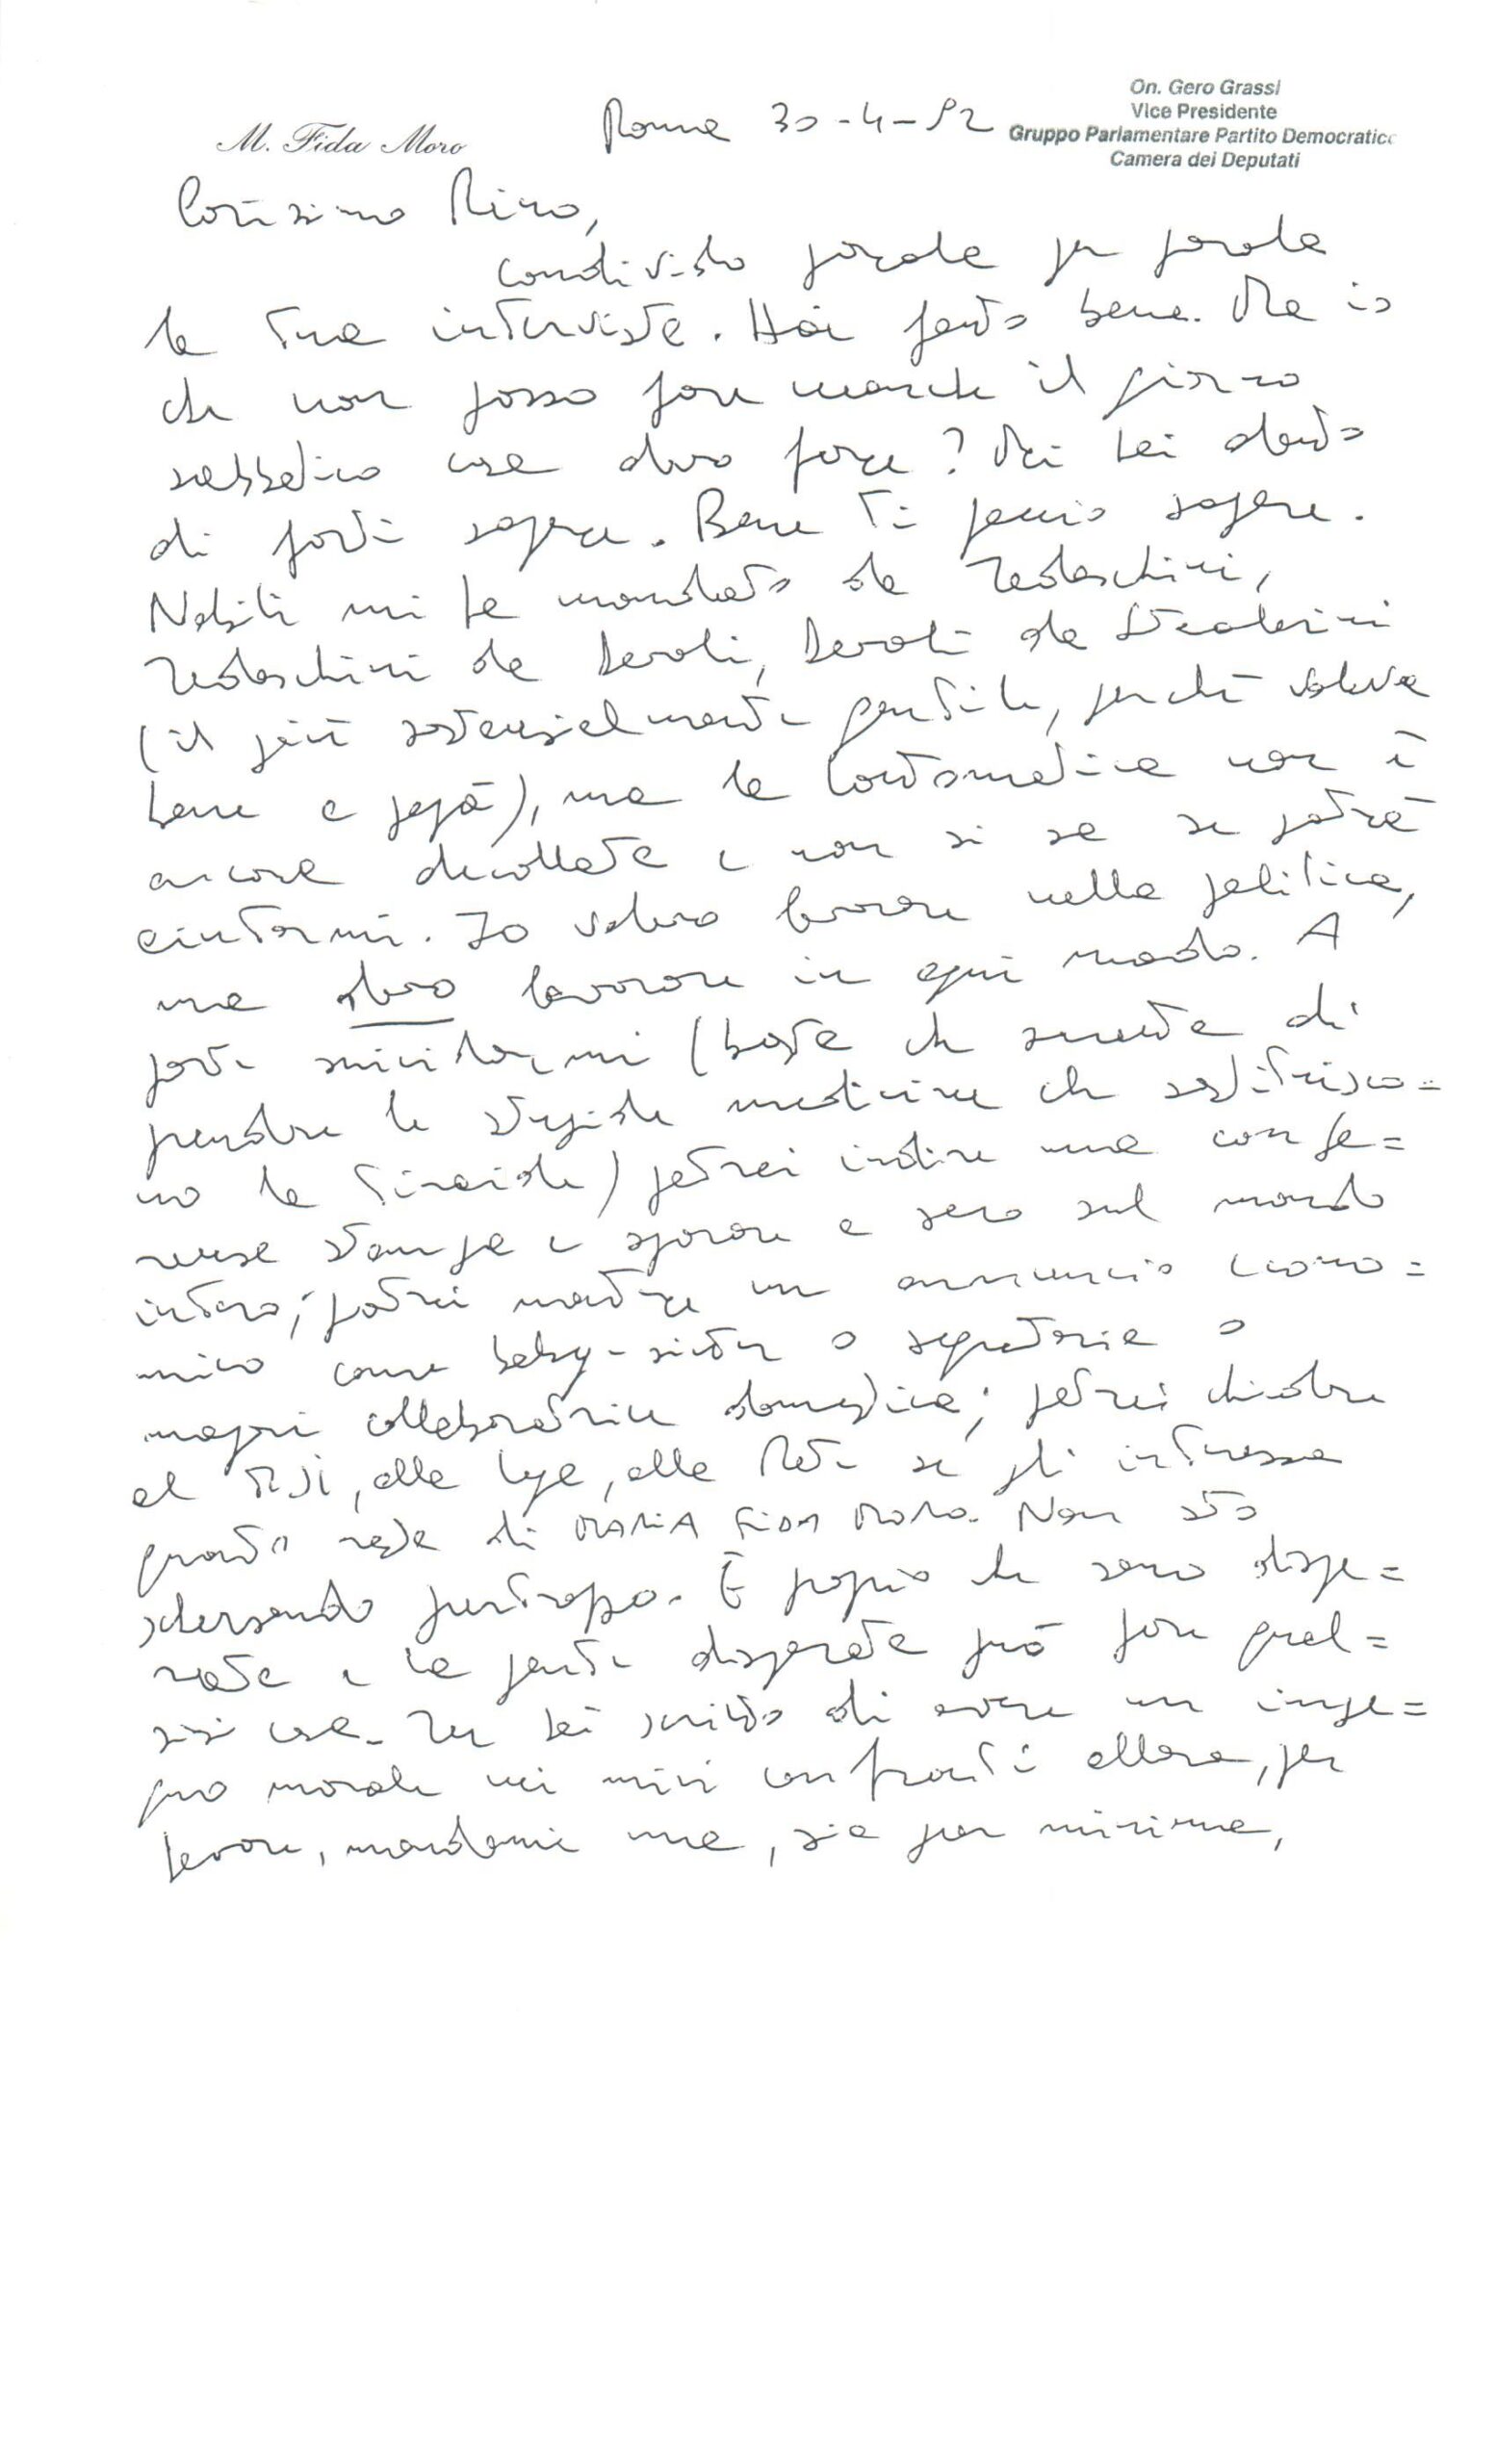 On. Gero Grassi
Vice Presidente
Gruppo Parlamentare Partito Democratico
Camera dei Deputati
M. Fida Moro
Roma 30-4-92
Carissimo Rino,
condivido parola per parola
la tua intervista. Hai fatto bene. Ma io
che non posso fare neanche il giorno
sabbatico cosa devo fare? Mi hai detto
di farti sapere. Bene ti faccio sapere.
Nobili mi ha mandato da Tedeschini,
Tedeschini da Davoli, Davoli da
(il più sostanzialmente gentile, perché voleva
bene a papà), ma la Contomatica non è
ancora decollata e non si sa se potrà
aiutarmi. Io volevo lavorare nella politica,
ma devo lavorare in ogni modo. A
parte suicidarmi (basta che smetta di
prendere le stupide medicine che sostituisco=
no la tiroide) potrei indire una confe=
renza stampa e sparare a zero sul mondo
intero; potrei mettere un annuncio econo=
mico come baby-sitter o segretaria o
magari collaboratrice domestica; potrei chiedere
al MSI, alla Lega, alla Rete se gli interessa
quanto resta di MARIA FIDA MORO. Non sto
scherzando purtroppo. È proprio che sono dispe=
rata e la gente disperata può fare qual=
siasi cosa. Tu hai scritto di avere un impe=
gno morale nei miei confronti allora, per
favore, mandami una, sia pur minima,